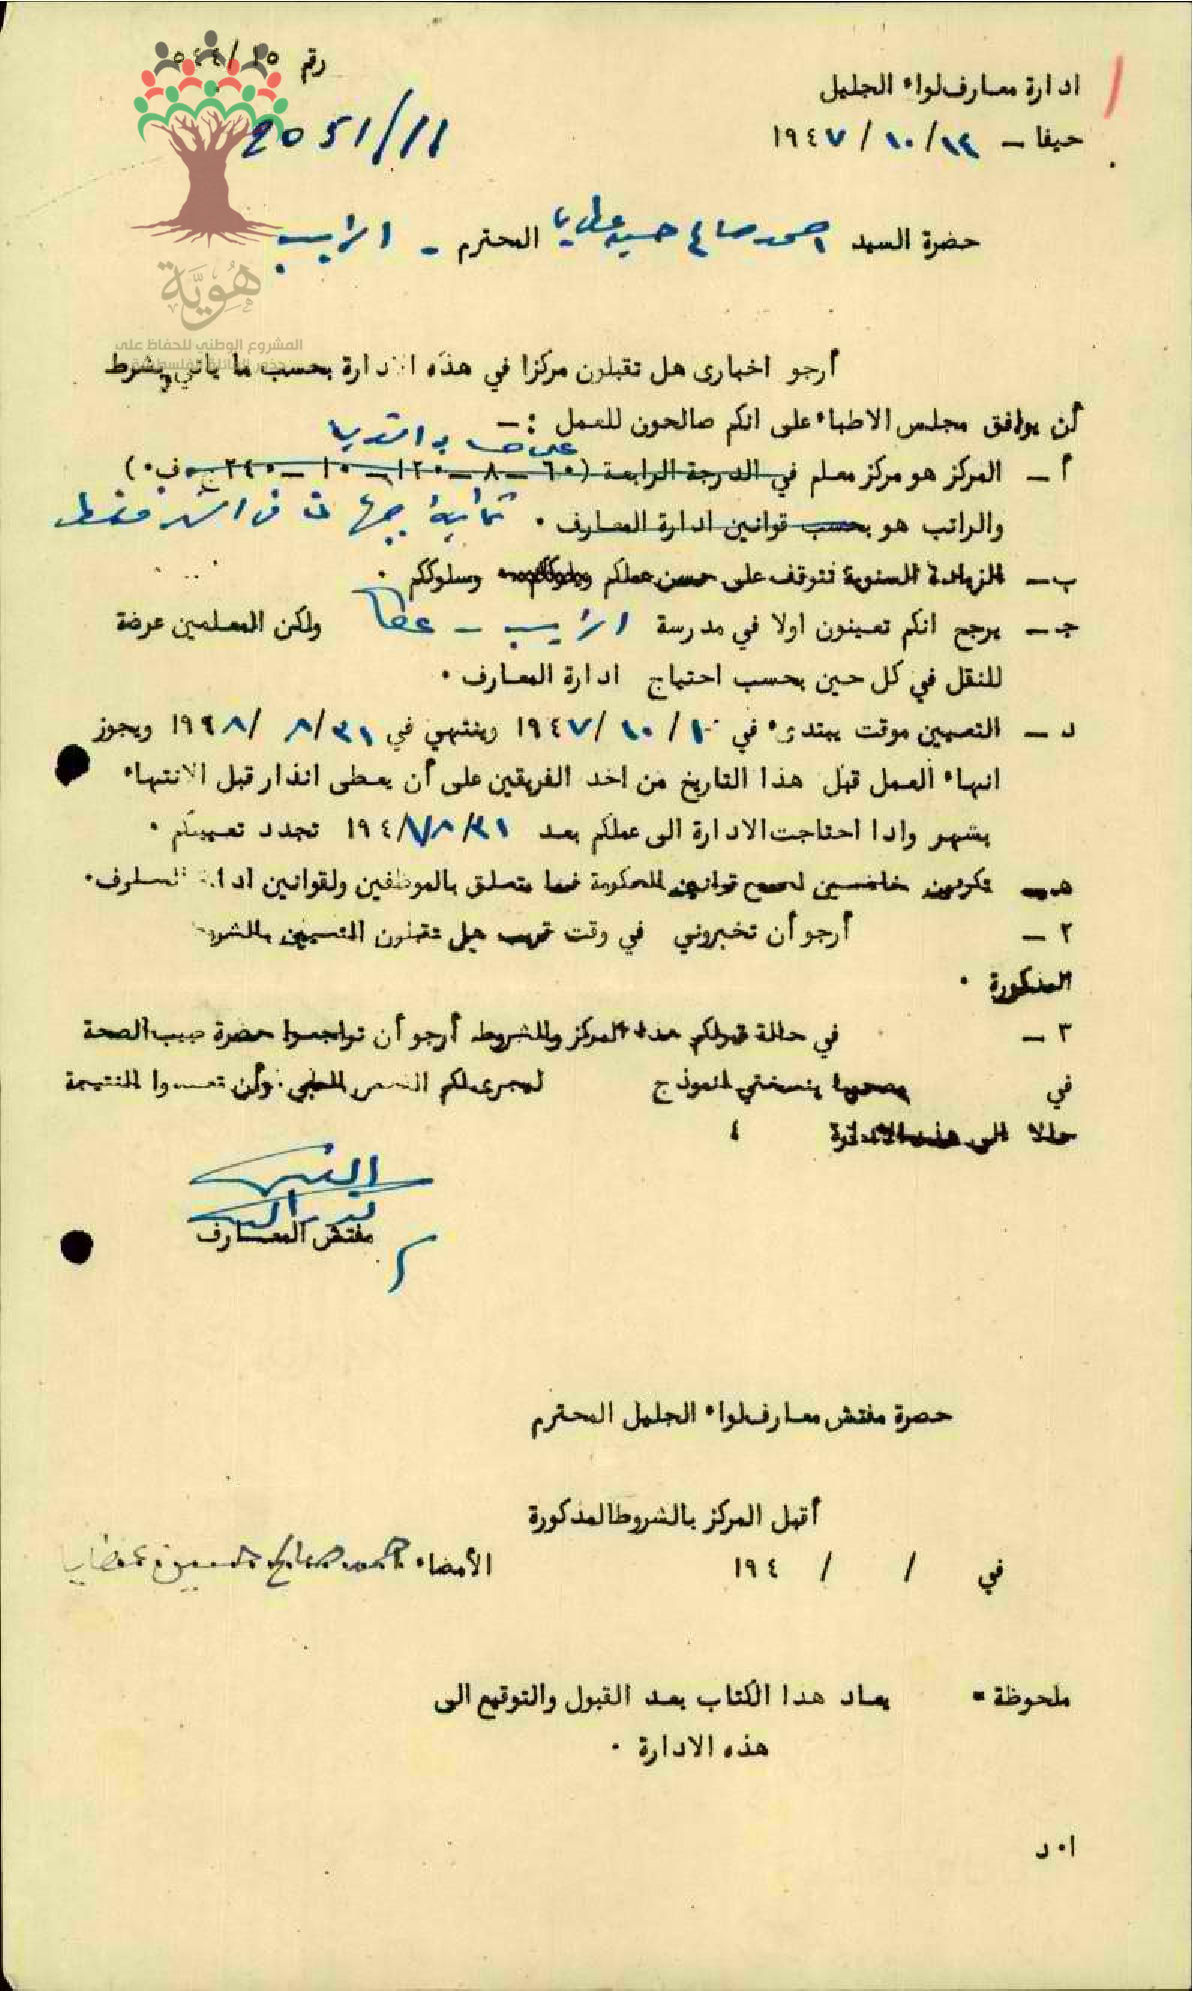 رقم ١٥/٥٤٤
ادارة معارف لواء الجليل
11/2051
حيفا - ١٩٤٧/١٠/١٢
حضرة السيد احمد صالح حسين عطايا المحترم - الزيب
هُوِيَّة
المشروع الوطني للحفاظ على
أرجو اخباري هل تقبلون مركزا في هذه الادارة بحسب ما ياتي وبشرط
أن يوافق مجلس الاطباء على انكم صالحون للعمل :-
على حساب
أ - المركز هو مركز معلم في الدرجة الرابعة (٦٠-٨-١٢٠-١٠-٢٤٠ ف٠)
والراتب هو بحسب قوانين ادارة المعارف ٠ ثمانية جنيهات في الشهر فقط
ب - الزيادة السنوية تتوقف على حسن عملكم وسلوككم ٠
ج - يرجح انكم تعينون اولا في مدرسة الزيب - عكا ولكن المعلمين عرضة
للنقل في كل حين بحسب احتياج ادارة المعارف ٠
د - التعيين موقت يبتدىء في ١٩٤٧/١٠/١ وينتهي في ٣١/٨/١٩٤٨ ويجوز
انهاء العمل قبل هذا التاريخ من احد الفريقين على أن يعطى انذار قبل الانتهاء
بشهر واذا احتاجت الادارة الى عملكم بعد ٣١/٨/١٩٤٨ تجدد تعيينكم ٠
هـ - تكونون خاضعين لجميع قوانين الحكومة فيما يتعلق بالموظفين ولقوانين ادارة المعارف٠
٢ - أرجو أن تخبروني في وقت قريب هل تقبلون التعيين بالشروط
المذكورة ٠
٣ - في حالة قبولكم هذا المركز والشروط أرجو أن تراجعوا حضرة طبيب الصحة
في مصحوبا بنسختي انموذج ليجرى لكم الفحص الطبي وأن تبعثوا النتيجة
حالا الى هذه الادارة ٤
مفتش المعارف
حضرة مفتش معارف لواء الجليل المحترم
أقبل المركز بالشروط المذكورة
في / / ١٩٤ الأمضاء احمد صالح حسين عطايا
ملحوظة = يعاد هذا الكتاب بعد القبول والتوقيع الى
هذه الادارة ٠
ا٠ د